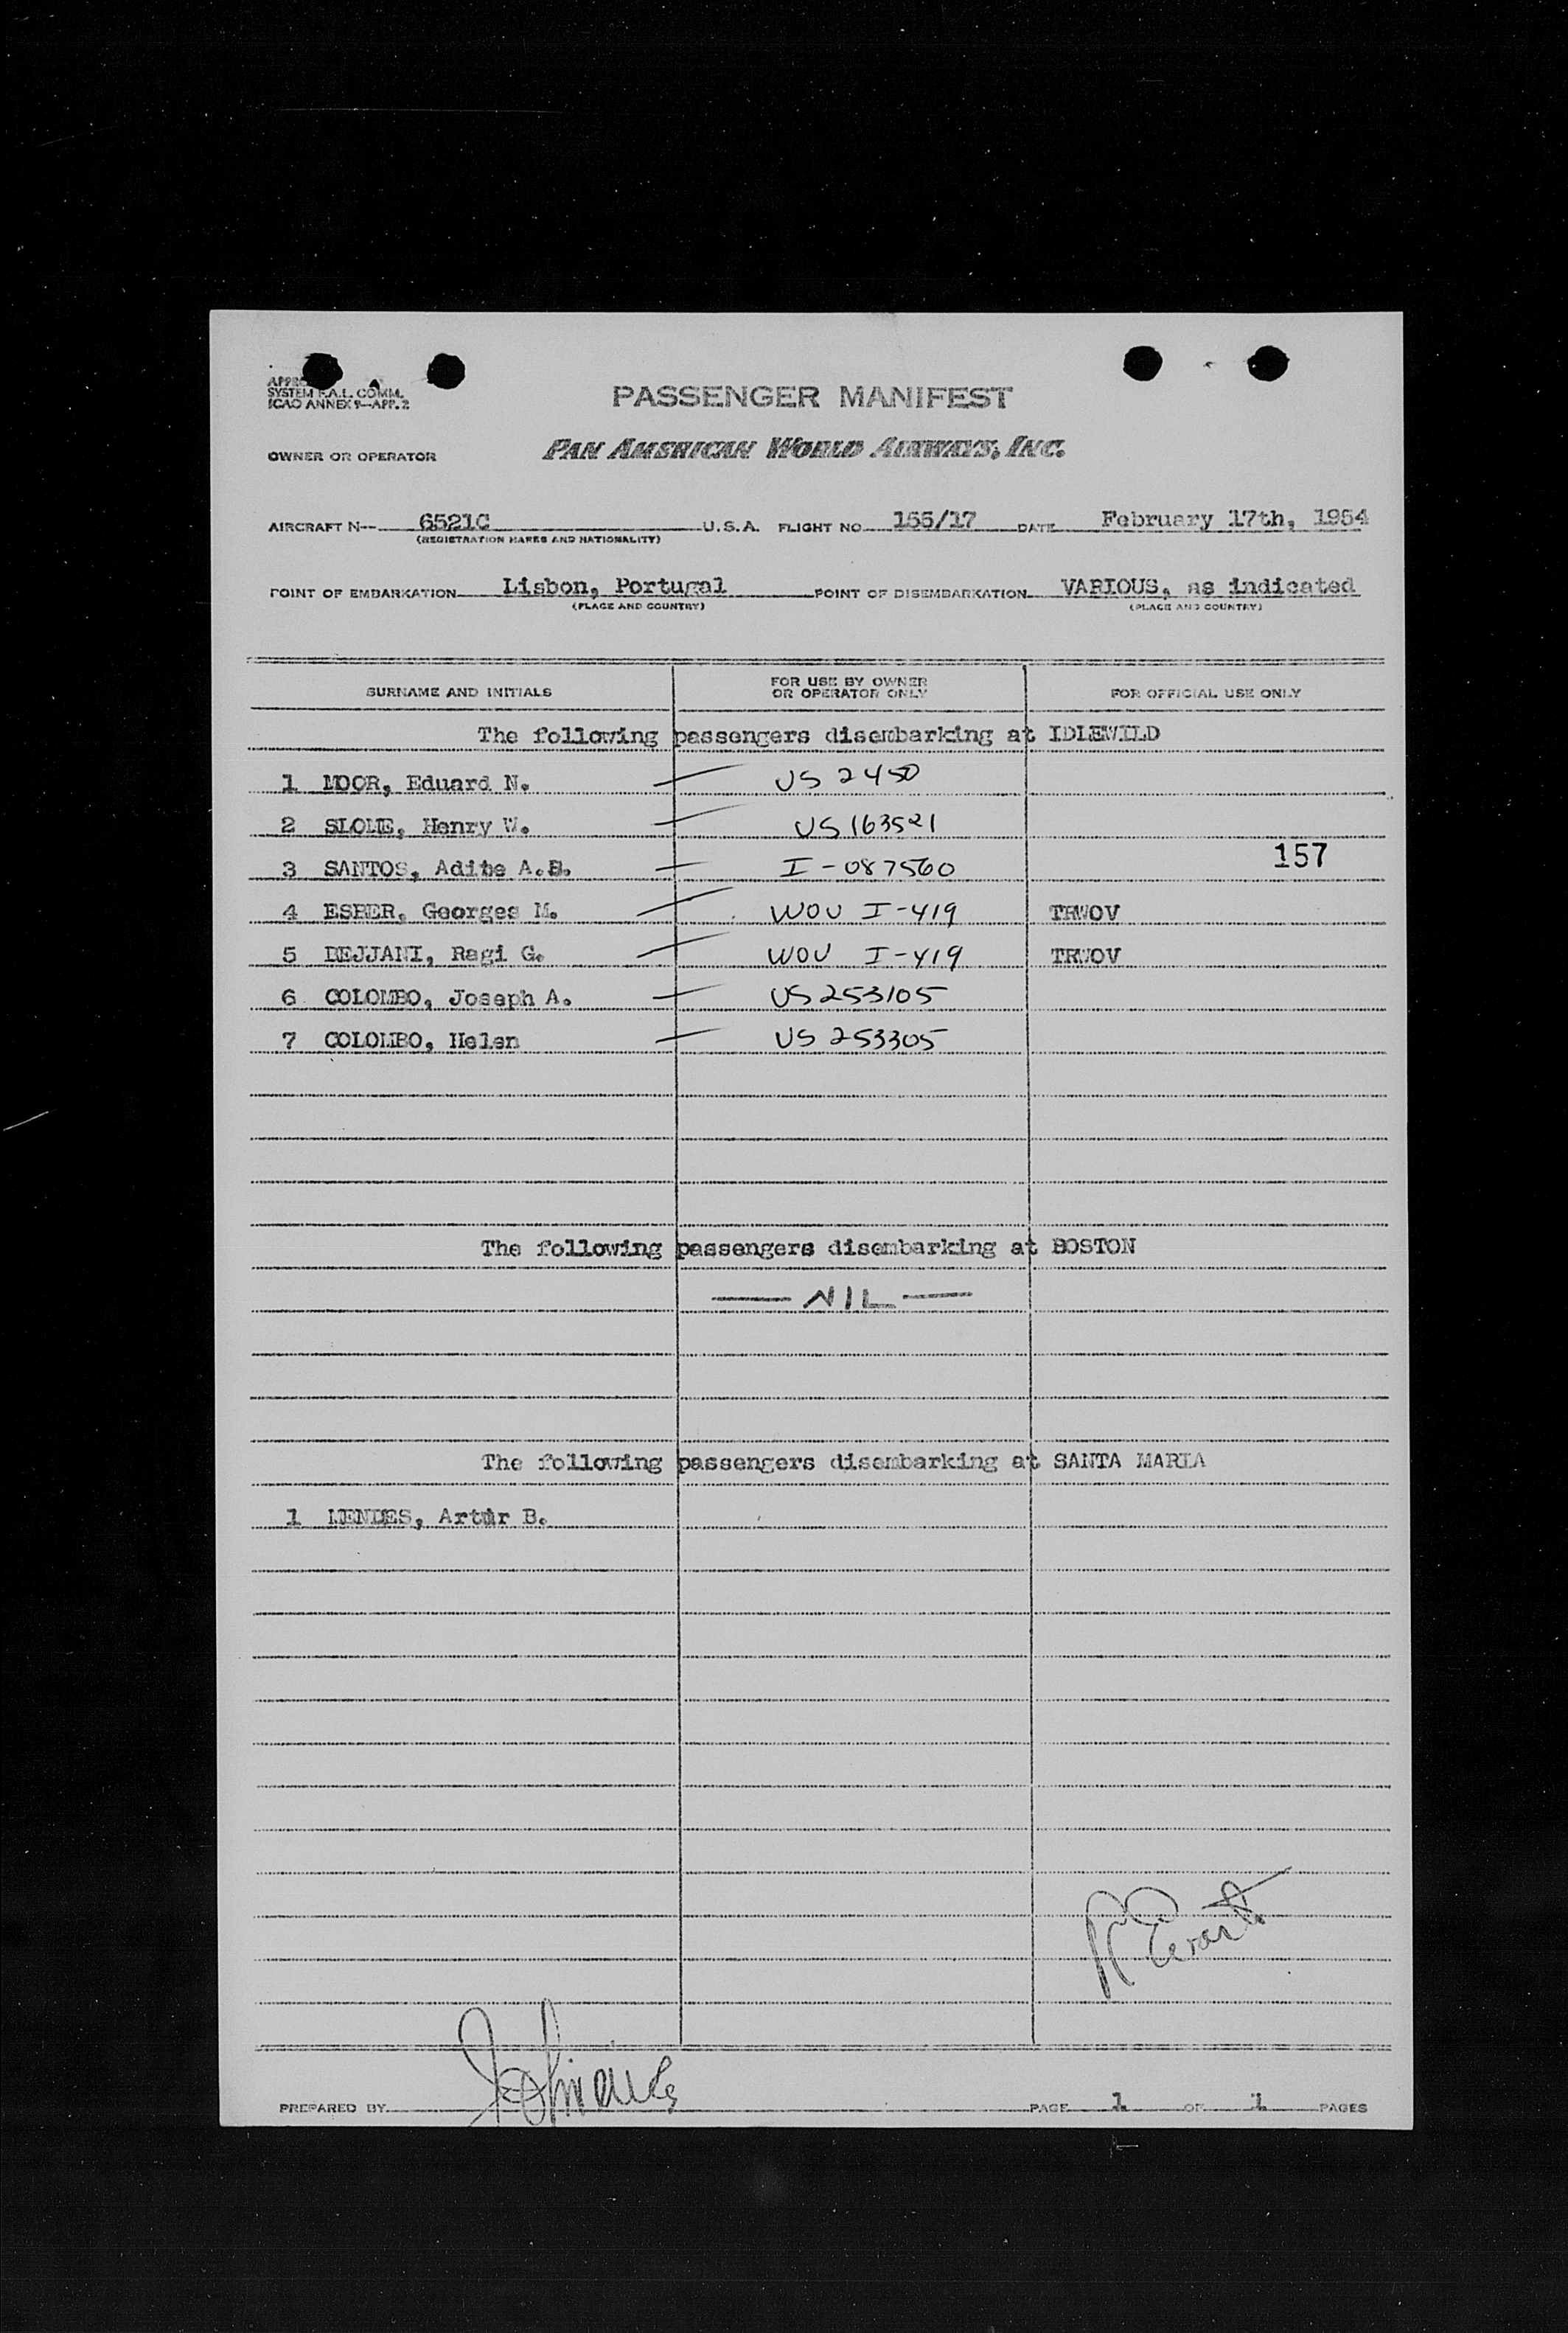 SYSTEM F.A.L. COMM.
ICAO ANNEX 9—APP. 2
PASSENGER MANIFEST
OWNER OR OPERATOR PAN AMERICAN WORLD AIRWAYS, INC.
AIRCRAFT N-- 6521C U.S.A. FLIGHT NO. 155/17 DATE February 17th, 1954
(REGISTRATION MARKS AND NATIONALITY)
POINT OF EMBARKATION Lisbon, Portugal POINT OF DISEMBARKATION VARIOUS, as indicated
(PLACE AND COUNTRY) (PLACE AND COUNTRY)
SURNAME AND INITIALS FOR USE BY OWNER OR OPERATOR ONLY FOR OFFICIAL USE ONLY
The following passengers disembarking at IDLEWILD
1 MOOR, Eduard N. — US 2450
2 SLOME, Henry W. — US 163521
3 SANTOS, Adibe A.B. — I-087560 157
4 ESBER, Georges M. — WOV I-419 TRWOV
5 DEJJANI, Ragi G. — WOV I-419 TRWOV
6 COLOMBO, Joseph A. — US 253105
7 COLOMBO, Helen — US 253305
The following passengers disembarking at BOSTON
— NIL —
The following passengers disembarking at SANTA MARIA
1 MENDES, Artur B.
PREPARED BY PAGE 1 OF 1 PAGES